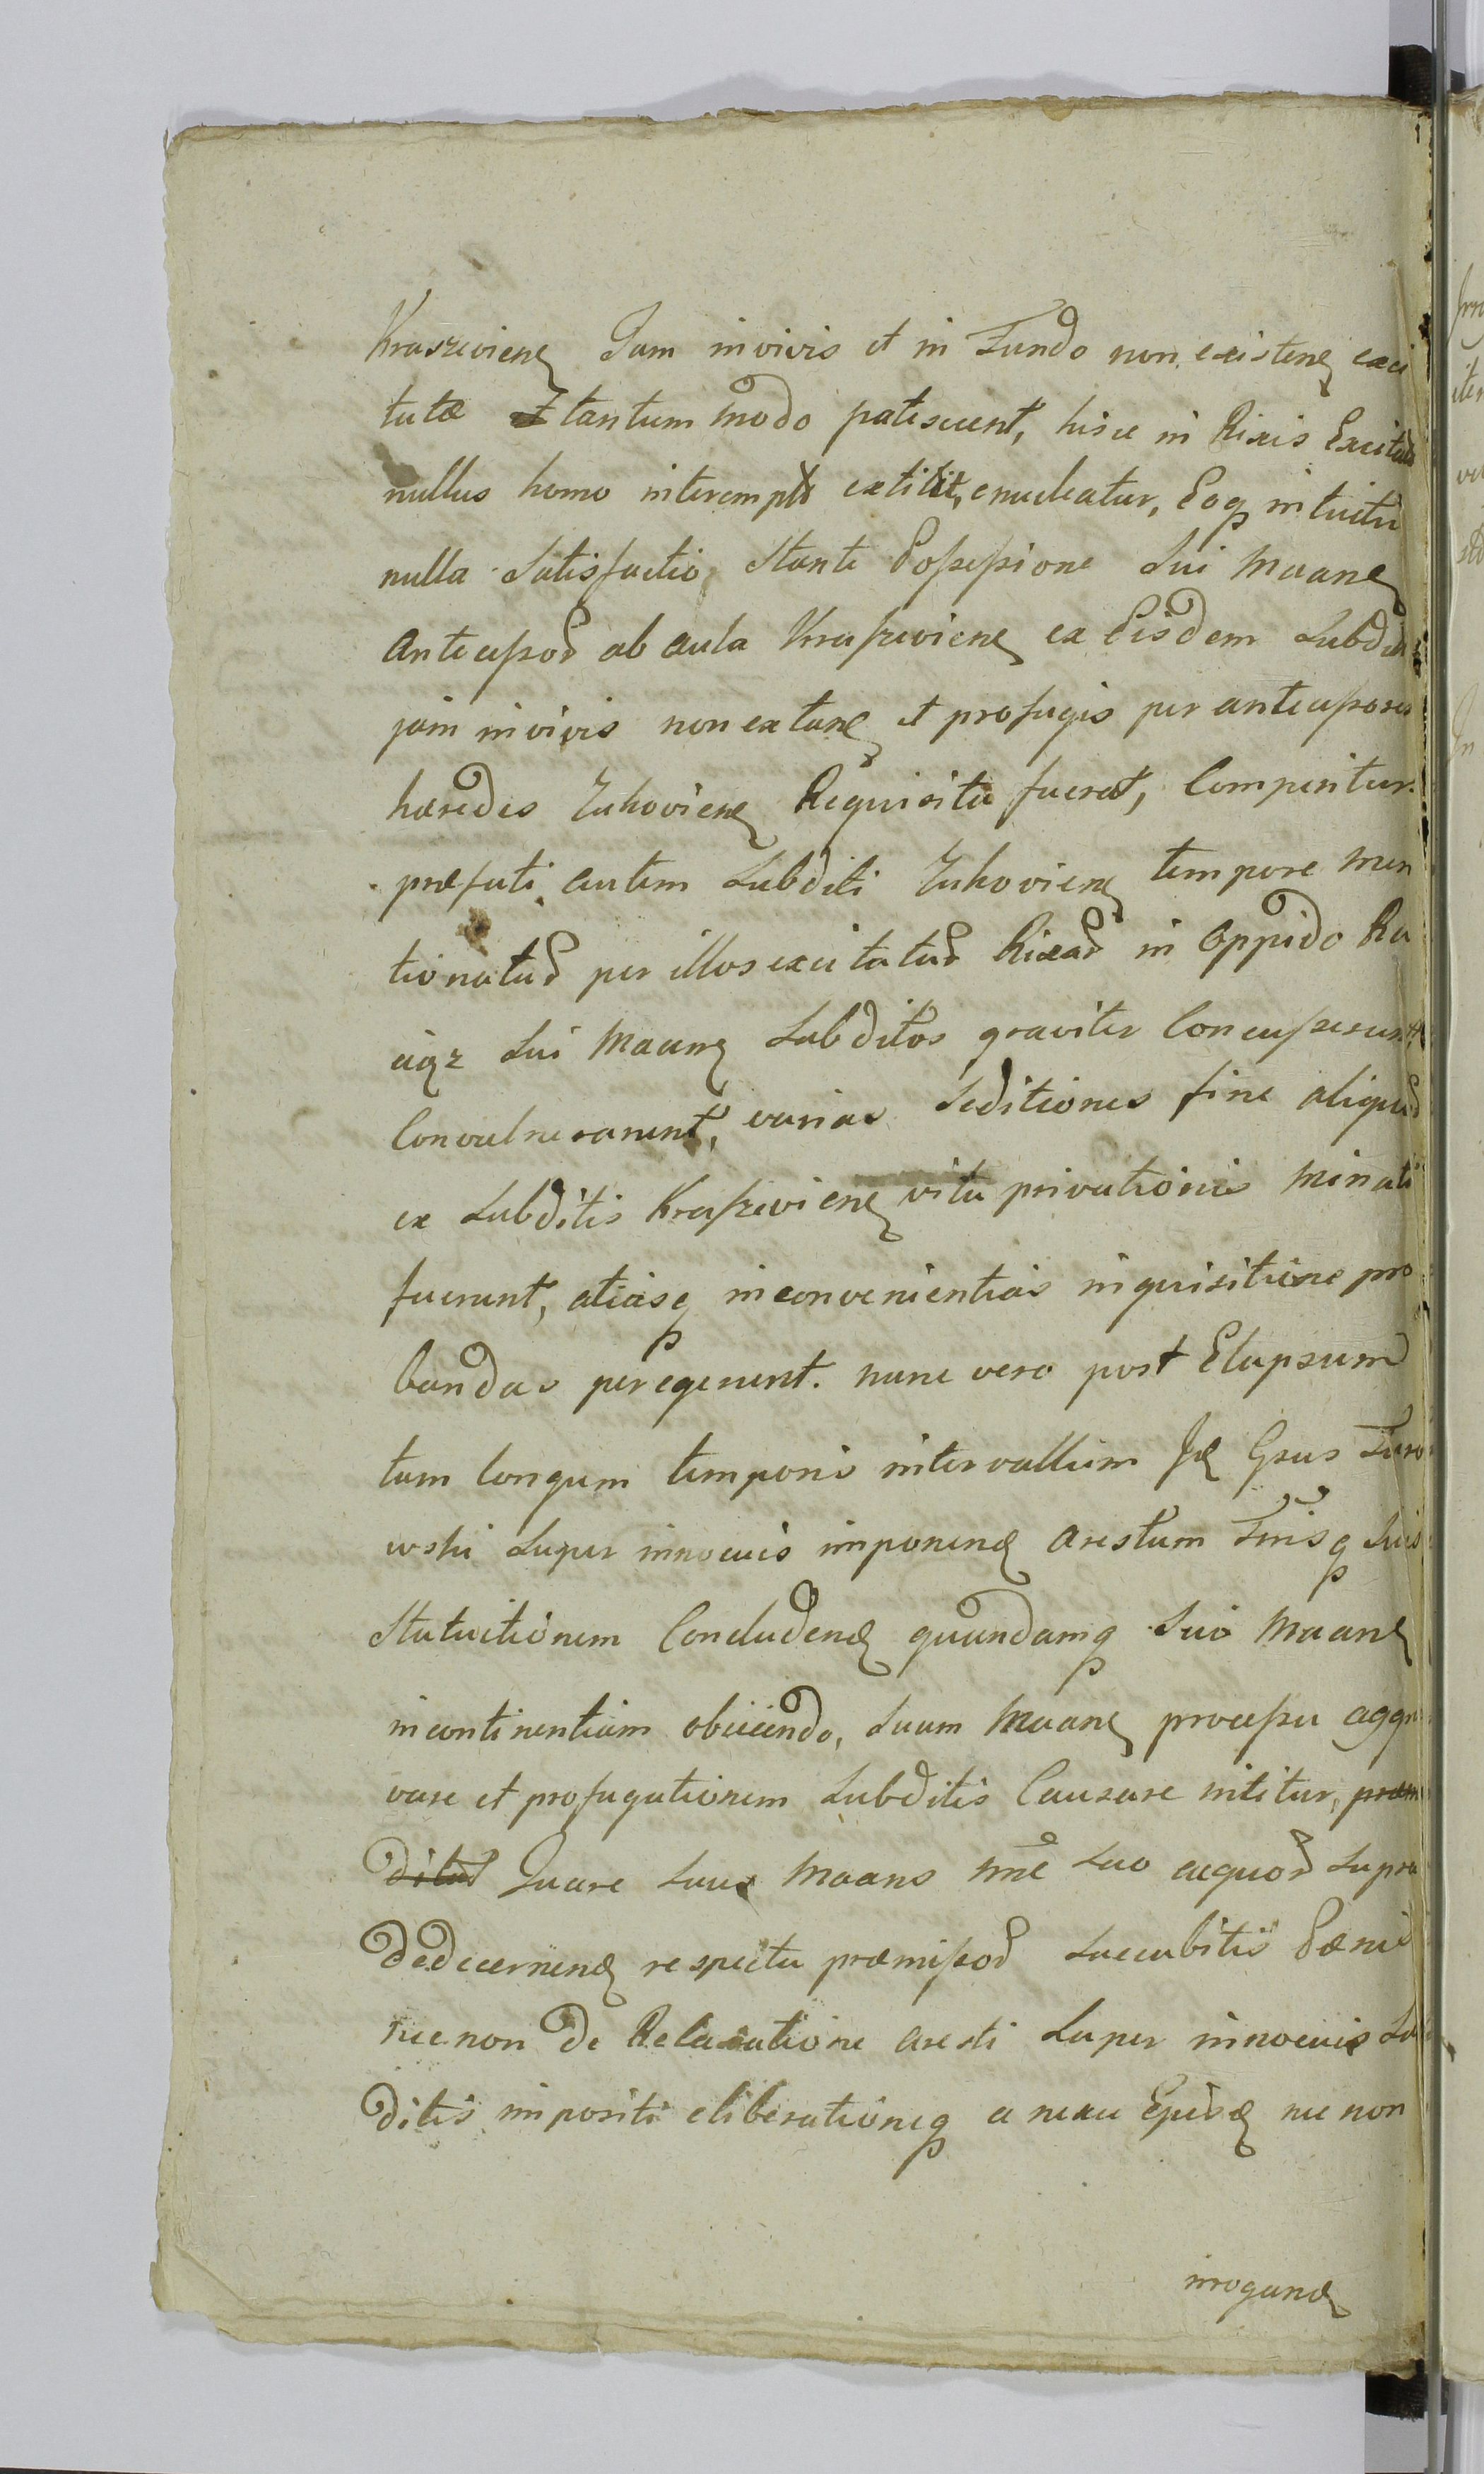 Kraszeviens Jam in vivis et in Fundo non existens exci
tatæ tantum modo patescunt, hisce in Rixis Excitatis
nullus homo interemptus extitit, enucleatur, Eoq intuitu
nulla Satisfactio Stante Possessione Sui Maans
Antecessor ab aula Krasseviens ex Eisdem Subdit
jam in vivis non extans et profugis per antecessores
hæredes Zukoviens Requisita fuerat, Comperitur.
præfati autem Subditi Zukoviens tempore men
tionatar per illos excitatar Rixar in Oppido Ra
Sui Maans Subditos graviter Concusserunt
Convulnerarunt, varias Seditiones sine aliqua
ex Subditis Krasseviens vita privationis minati
fuerunt, aliasq inconvenientias inquisitione pro
bandas peregerunt. nunc vero post Elapsum
tam longum temporis intervallum Gsus
wski Super innocuis imponend Arestum
Statuitionem Concludend quandamq Suo Maans
incontinentiam obiiciendo, Suum Maans processu aggra
vare et profugationem Subditis Causare nititur,
Quare Suus Maans me Suo æquor Supra
Dedecernend respectu præmissor Succubitis Pænis
necnon De Relaxatione aresti Super innocuis Sub
ditis impositi eliberationeq a nexu nec non
irrogand